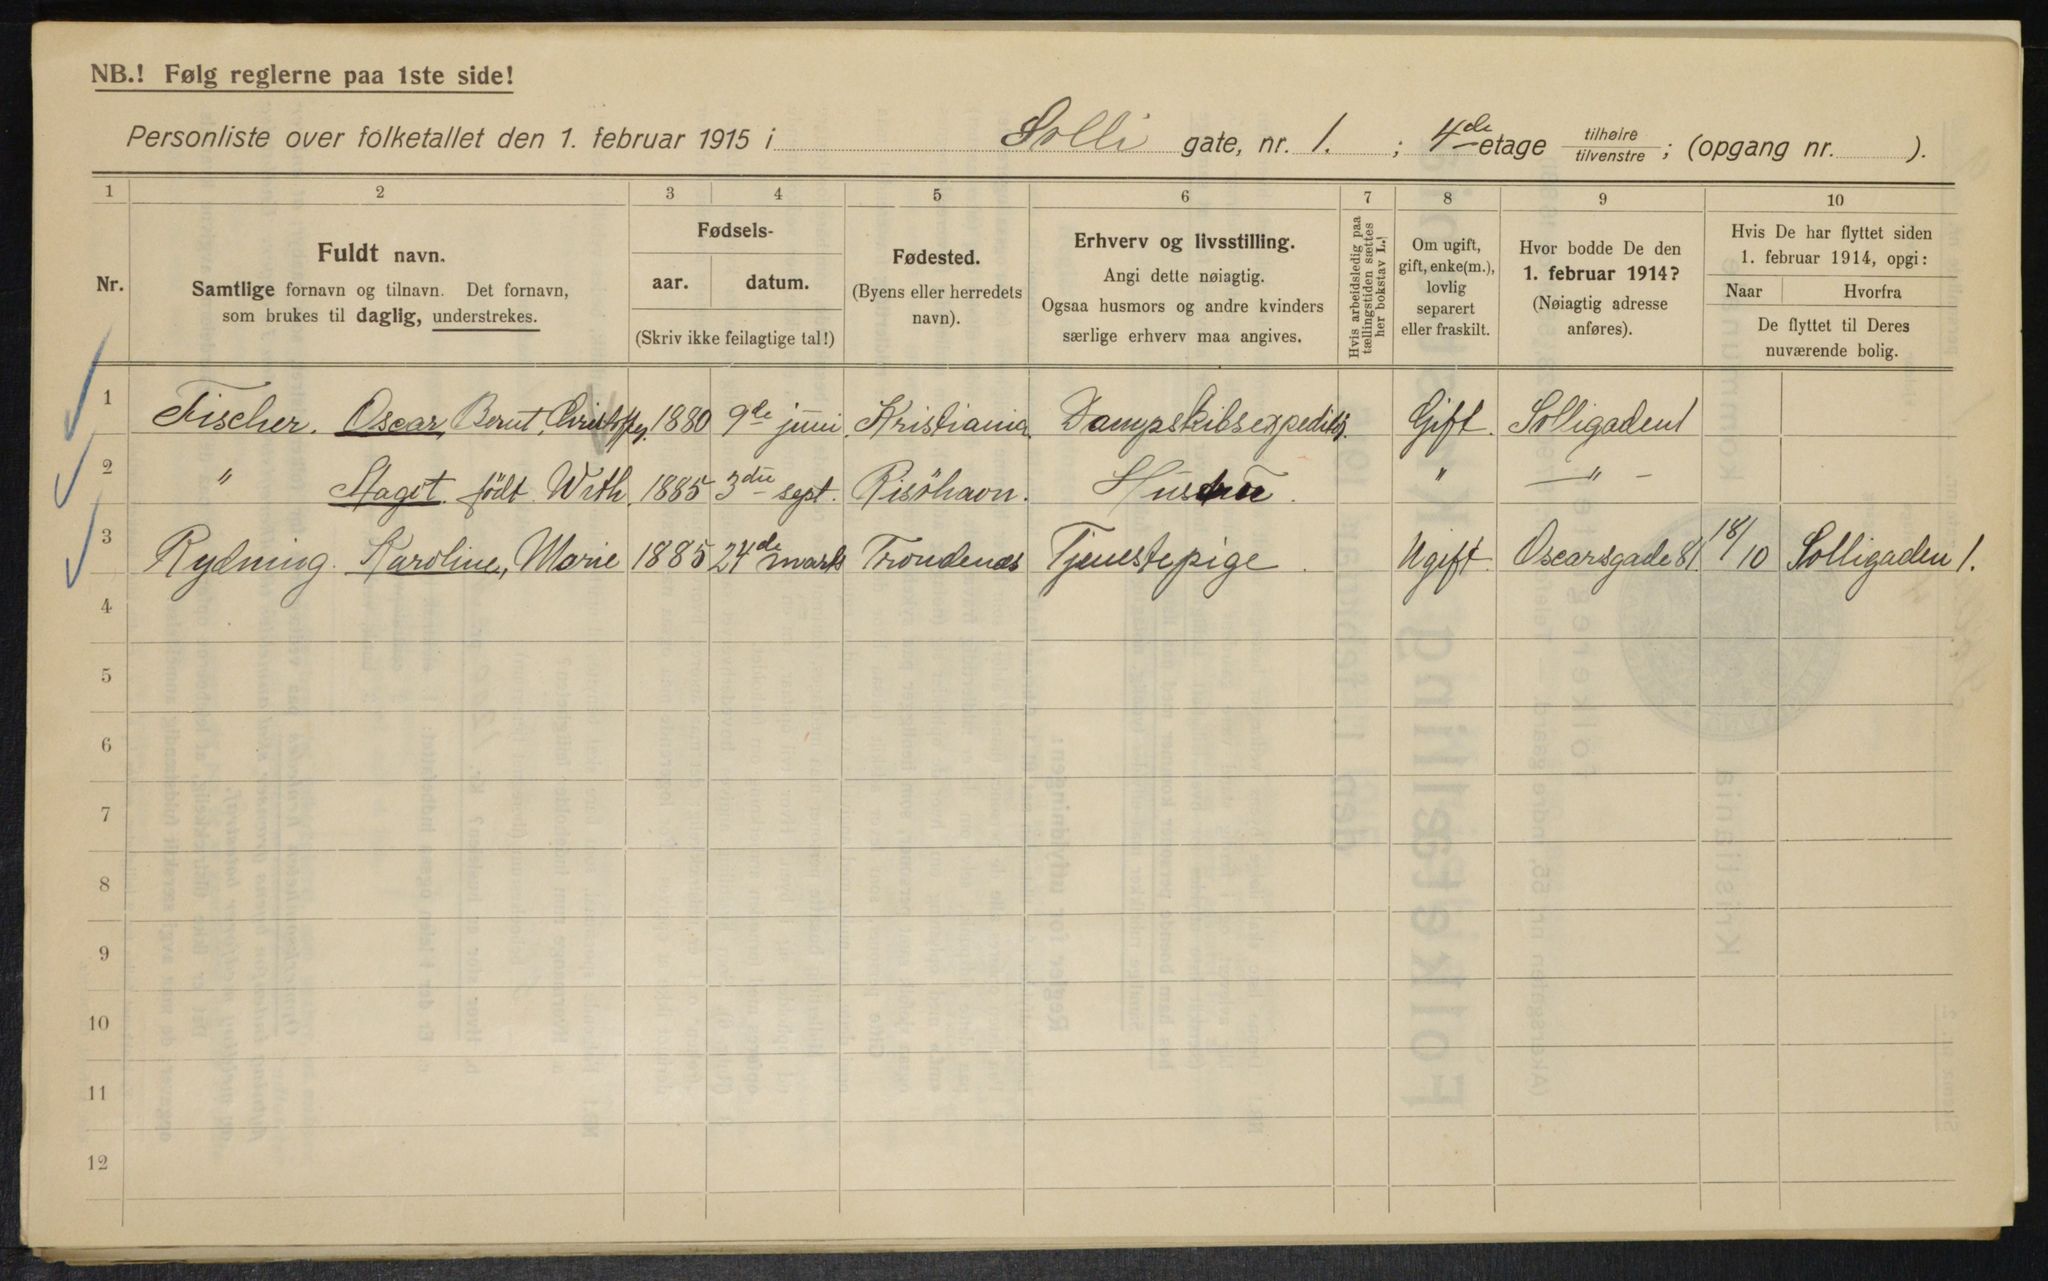 NB.! Følg reglerne paa 1ste side!
Personliste over folketallet den 1. februar 1915 i Solli gate, nr. 1. ; 4de etage tilhøire/tilvenstre; (opgang nr. ).
1 2 3 4 5 6 7 8 9 10
Nr.
Fuldt navn.
Samtlige fornavn og tilnavn. Det fornavn,
som brukes til daglig, understrekes.
Fødsels-
aar. datum.
(Skriv ikke feilagtige tal!)
Fødested.
(Byens eller herredets
navn).
Erhverv og livsstilling.
Angi dette nøiagtig.
Ogsaa husmors og andre kvinders
særlige erhverv maa angives.
Hvis arbeidsledig paa
tællingstiden sættes
her bokstav L.!
Om ugift,
gift, enke(m.),
lovlig
separert
eller fraskilt.
Hvor bodde De den
1. februar 1914?
(Nøiagtig adresse
anføres).
Hvis De har flyttet siden
1. februar 1914, opgi:
Naar Hvorfra
De flyttet til Deres
nuværende bolig.
1 Fischer. Oscar, Bernt, 1880 9de juni Kristiania. Dampskibsexpeditør. Gift. Solligaden 1
2 " født With. 1885 3die sept. Risöhavn. Hustru. " — " —
3 Rydning. Karoline, Marie 1885 24de marts Trondenæs Tjenestepige. Ugift. Oscarsgade 81. 18/10 Solligaden 1.
4
5
6
7
8
9
10
11
12